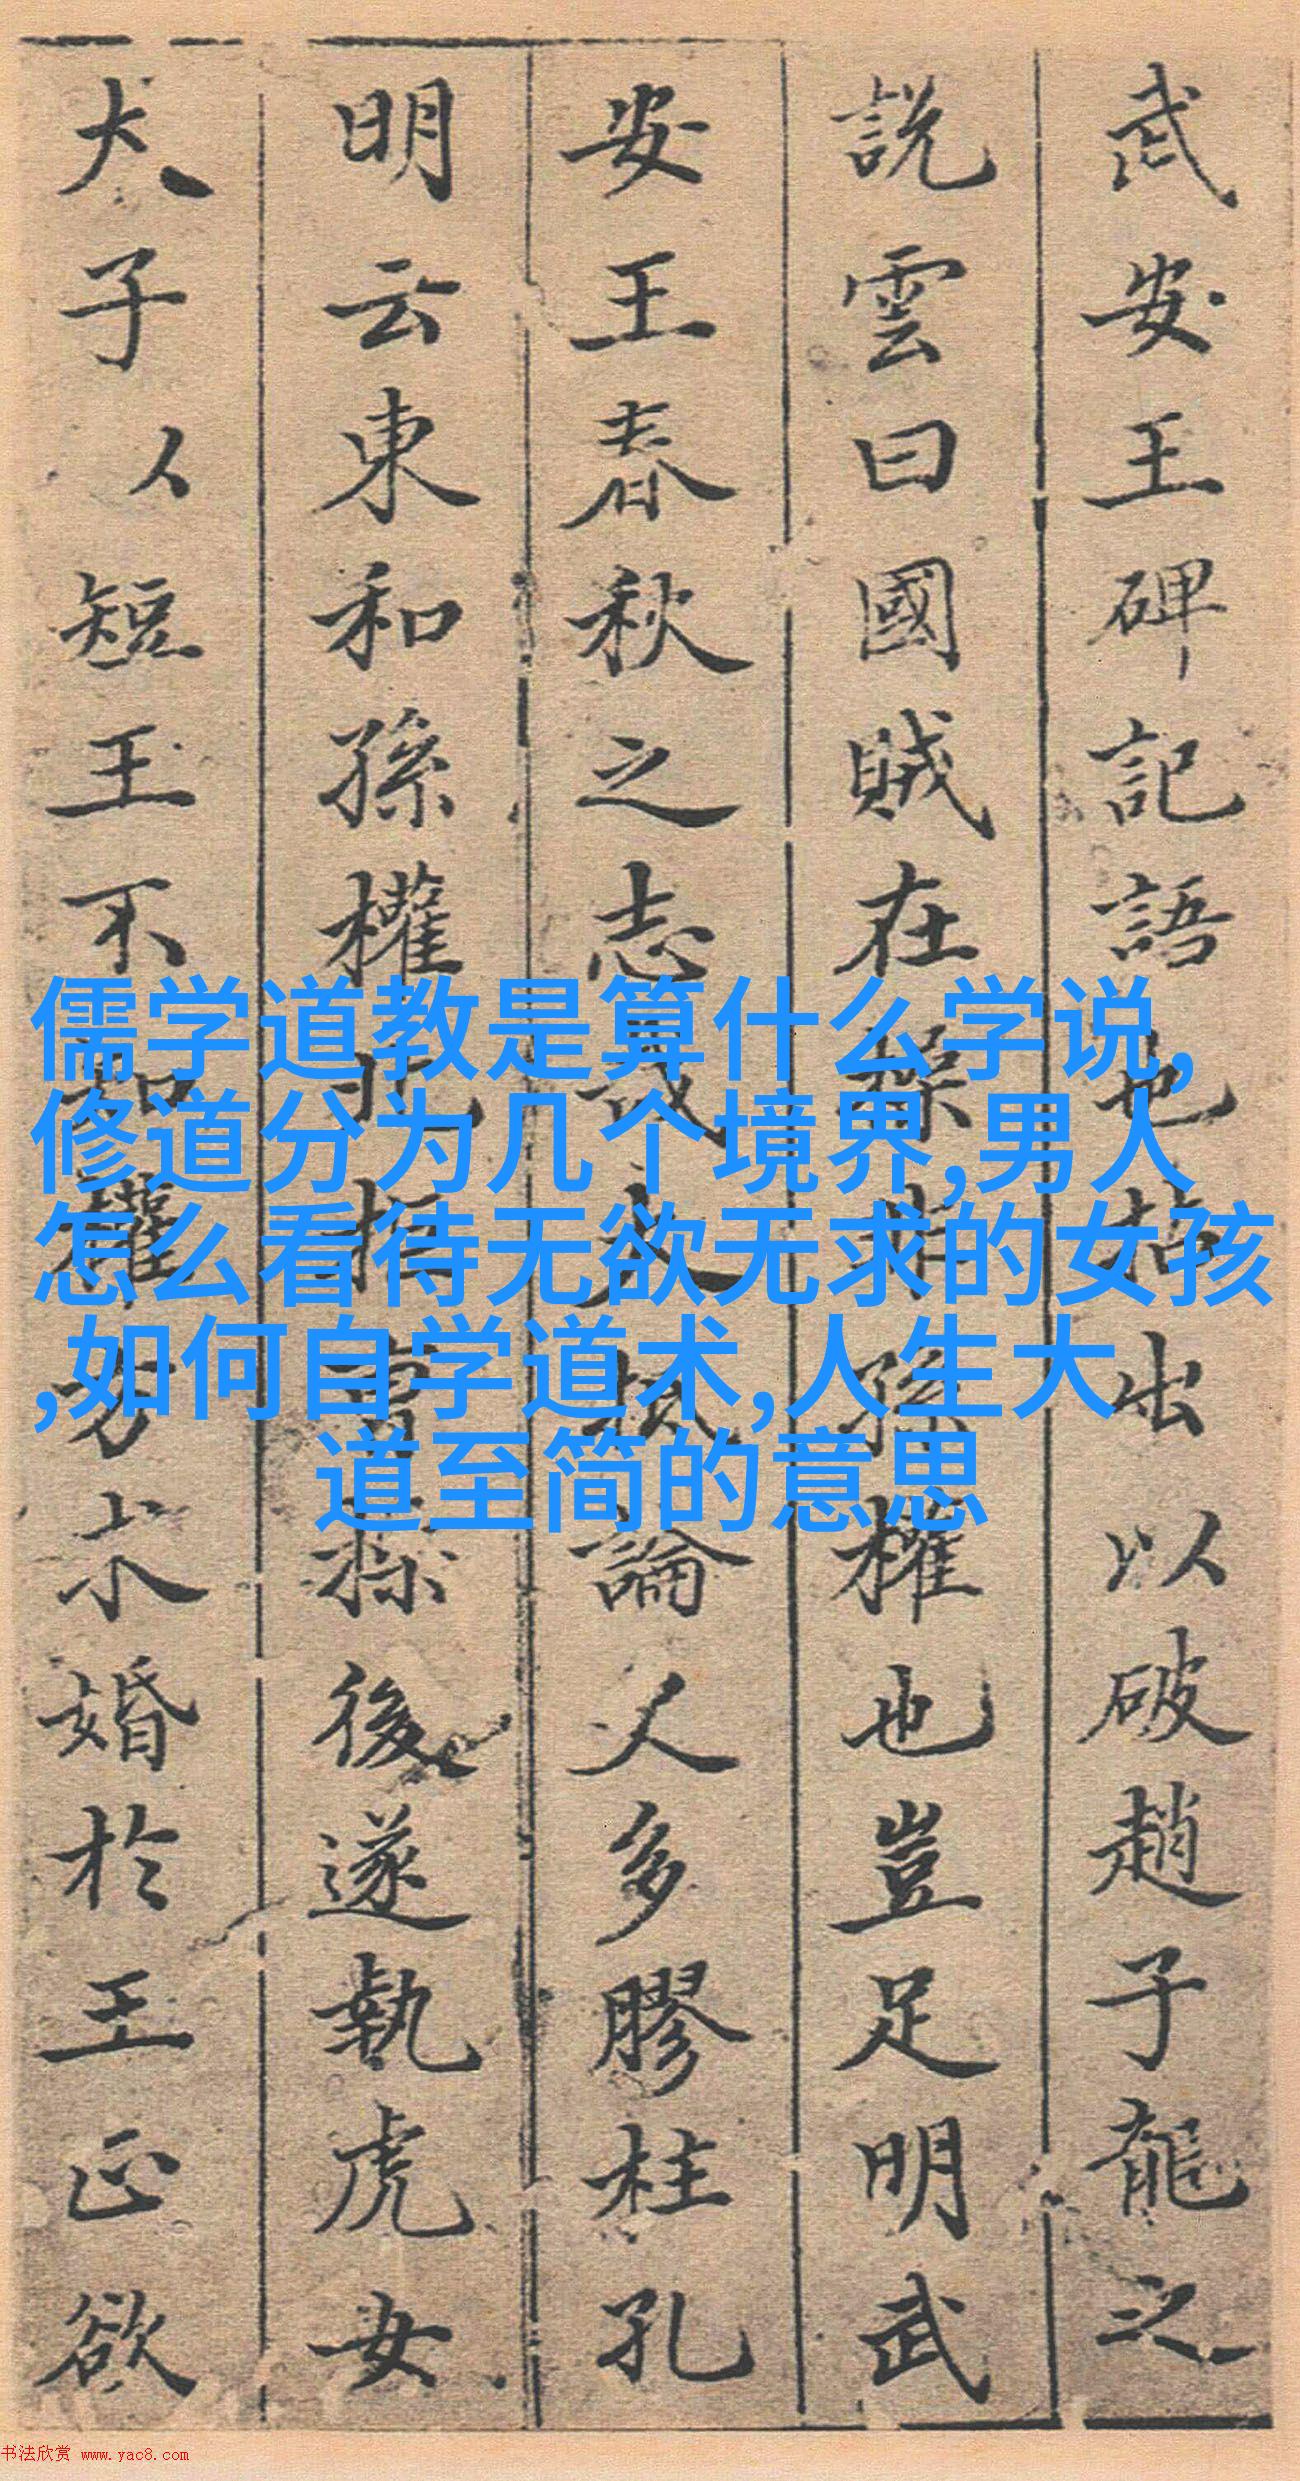 武安王碑記語也拈出以破趙子龍之
說雲曰國賊在操非孫權也豈足明武
安王春秋之志哉文人執論人多膠柱孔
明云東和孫權北拒曹操後遂執虎女
犬子以短王不知權方求婚於王正欲
儒学道教是算什么学说,
修道分为几个境界,男人
怎么看待无欲无求的女孩
,如何自学道术,人生大
道至简的意思
书法欣赏 www.yac8.com